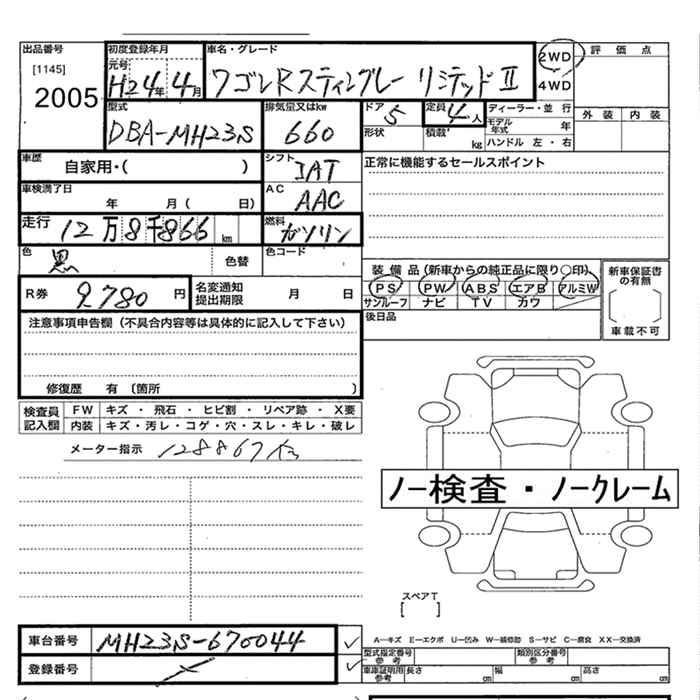 出品番号 初度登録年月 車名・グレード 評価点
[1145] 元号 2WD
2005 H24年 4月 ワゴンRスティングレー リミテッドⅡ 4WD
型式 排気量又はkw ドア 定員 ディーラー・並行 外装 内装
DBA-MH23S 660 5 4人 モデル年式 年
形状 積載 kg ハンドル 左・右
車歴 自家用・( ) シフト IAT 正常に機能するセールスポイント
車検満了日 年 月( 日) AC AAC
走行 12万8千866km 燃料 ガソリン
色 黒 色替 色コード
装備品(新車からの純正品に限り○印) 新車保証書の有無
R券 9,780円 名変通知提出期限 月 日 PS PW ABS エアB アルミW [ ]
サンルーフ ナビ TV カワ
注意事項申告欄(不具合内容等は具体的に記入して下さい) 後日品 車載不可
修復歴 有 〔箇所 〕
検査員記入欄 FW キズ・飛石・ヒビ割・リペア跡・X要
内装 キズ・汚レ・コゲ・穴・スレ・キレ・破レ
メーター指示 128867km
ノー検査・ノークレーム
スペアT
[ ]
車台番号 MH23S-670044
A−キズ E−エクボ U−凹み W−補修跡 S−サビ C−腐食 XX−交換済
登録番号 型式指定番号 参考 類別区分番号 参考
車庫証明用 参考 長さ cm 幅 cm 高さ cm